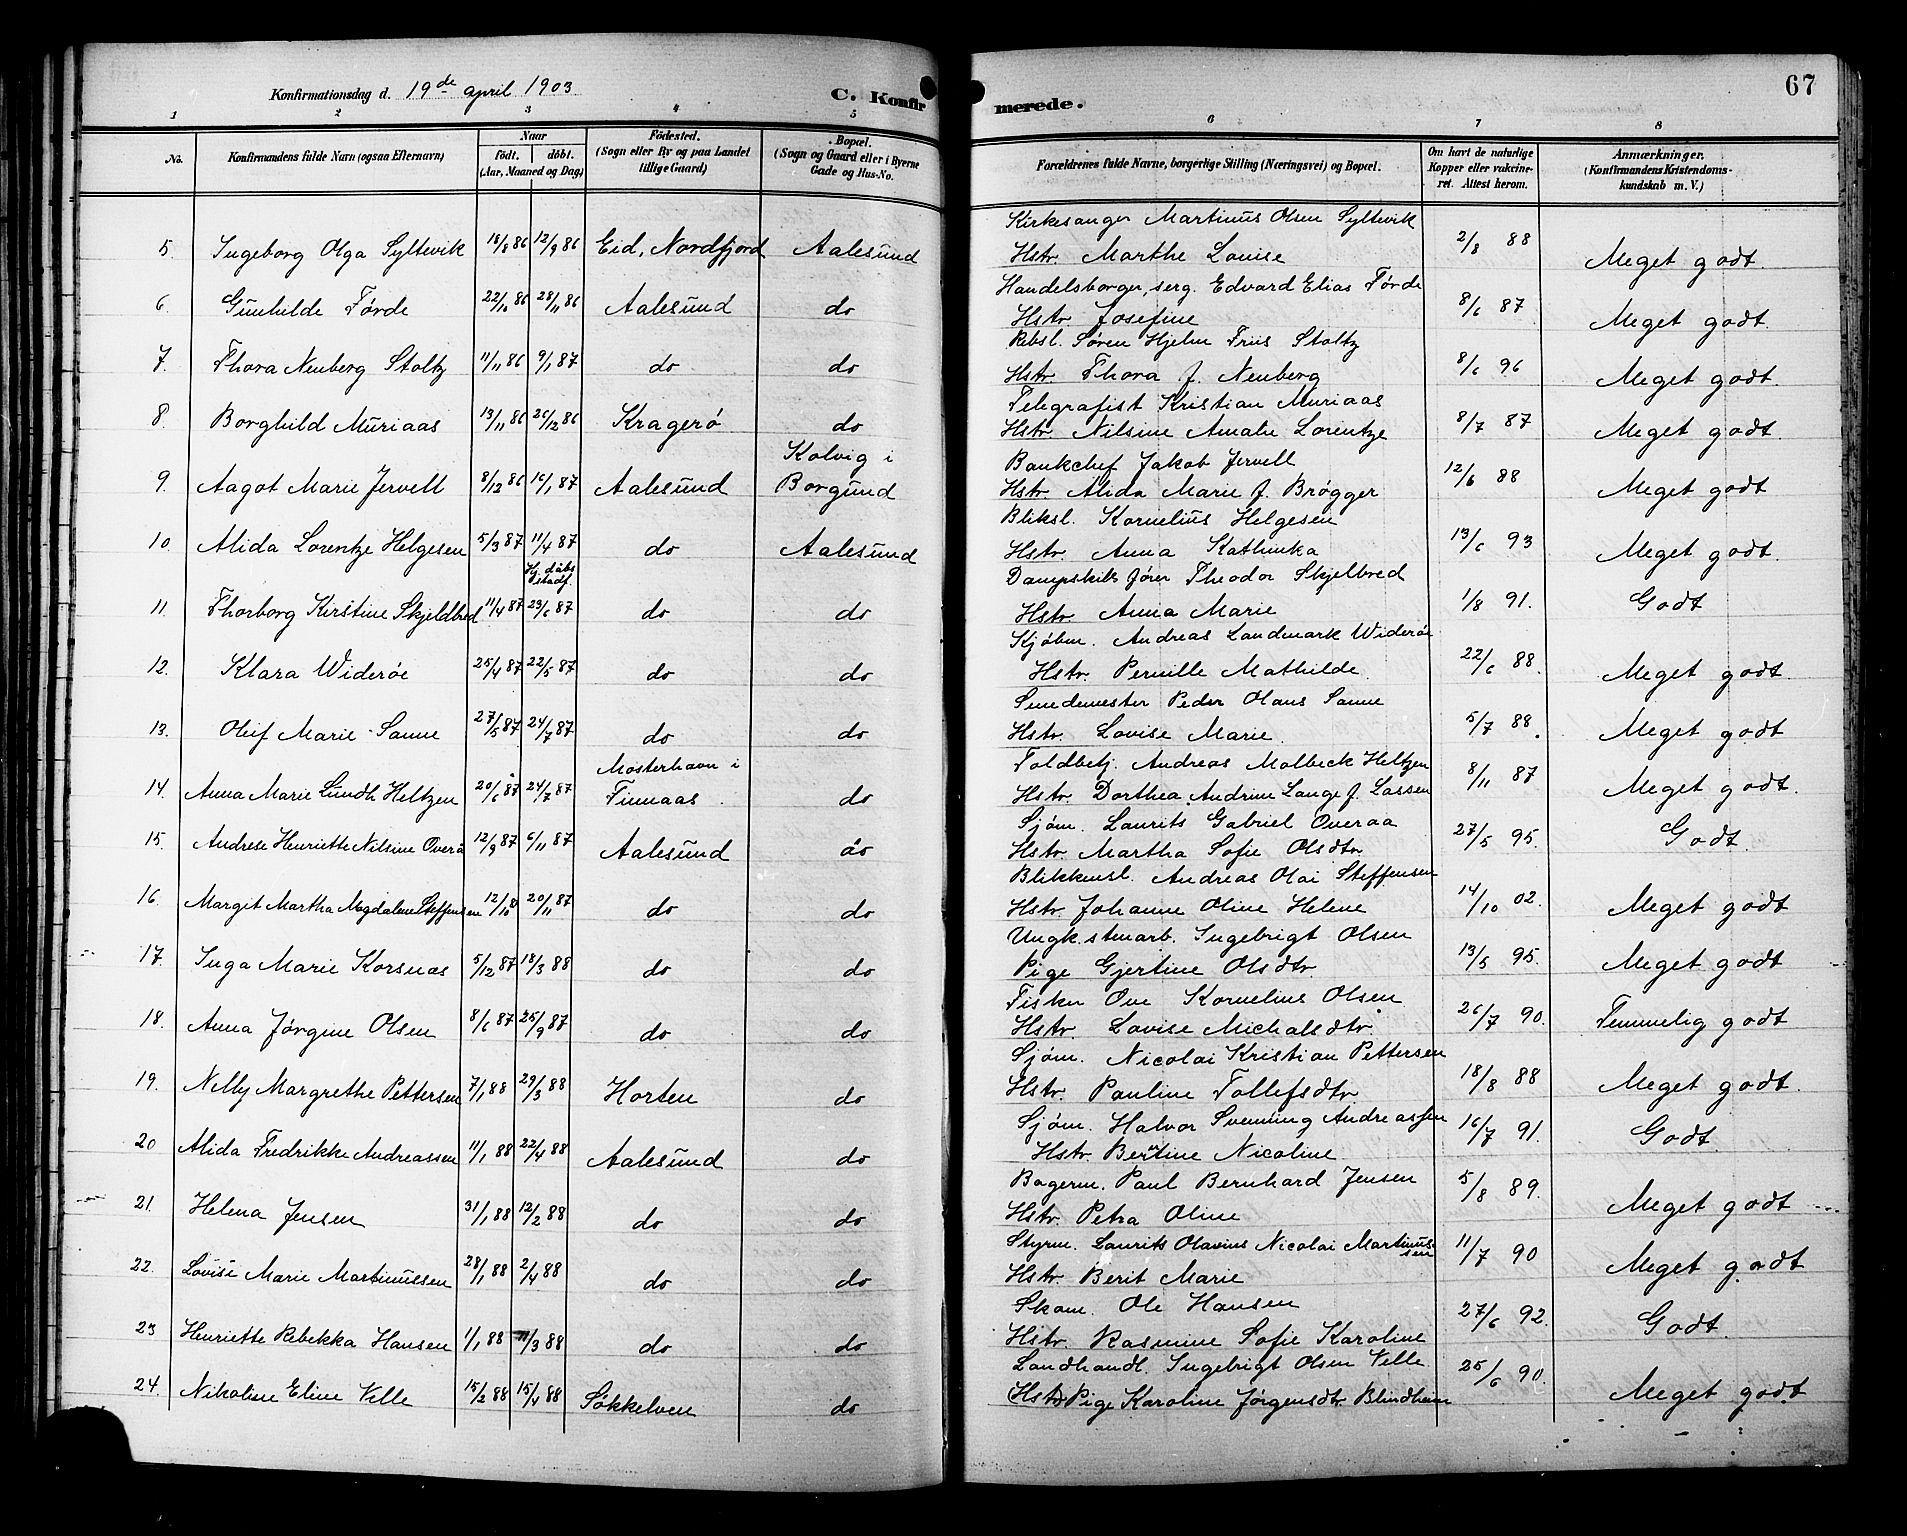 67
Konfirmationsdag d. 19de april 1903
C. Konfirmerede.
1 2 3 4 5 6 7 8
No. Konfirmandens fulde Navn (ogsaa Efternavn) Naar født. døbt. (Aar, Maaned og Dag) Fødested. (Sogn eller By og paa Landet tillige Gaard) Bopæl. (Sogn og Gaard eller i Byerne Gade og Hus-No. Forældrenes fulde Navne, borgerlige Stilling (Næringsvei) og Bopæl. Om havt de naturlige Kopper eller vakcineret. Attest herom. Anmærkninger. (Konfirmandens Kristendomskundskab m. V.)
Kirkesanger Martinus Olsen Syltevik
5. Ingeborg Olga Syltevik 18/8 86 12/9 86 Eid, Nordfjord Aalesund Hstr. Marthe Louise 2/8 88 Meget godt.
Handelsborger, serg. Edvard Elias Førde
6. Gunhilde Førde 22/10 86 28/11 86 Aalesund do Hstr. Josefine 8/6 87 Meget godt.
Rebsl. Søren Hjelm Friis Stoltz
7. Thora Neuberg Stoltz 11/11 86 9/1 87 do do Hstr. Thora f. Neuberg 8/6 96 Meget godt.
Telegrafist Kristian Muriaas
8. Borghild Muriaas 13/11 86 26/12 86 Kragerø do Hstr. Nilsine Amalie Lorentze 8/7 87 Meget godt.
Kolvig i Bankchef Jakob Jervell
9. Aagot Marie Jervell 8/12 86 16/1 87 Aalesund Borgund Hstr. Alida Marie f. Brøgger 12/6 88 Meget godt
Bliksl. Kornelius Helgesen
10. Alida Lorentze Helgesen 5/3 87 11/4 87 do Aalesund Hstr. Anna Kathinka 13/6 93 Meget godt.
Hj. døbt stadf. Dampskibsfører Theodor Skjelbred
11. Thorborg Kirstine Skjeldbred 11/4 87 23/6 87 do do Hstr. Anna Marie 1/8 91. Godt
Kjøbm. Andreas Landmark Widerøe
12. Klara Widerøe 25/4 87 22/5 87 do do Hstr. Pernille Mathilde. 22/6 88. Meget godt.
Smedemester Peder Olaus Sanne
13. Oluf Marie Sanne 27/5 87 24/7 87 do do Hstr. Lovise Marie. 5/7 88. Meget godt
Mosterhavn i Toldbetj. Andreas Molbeck Heltzen
14. Anna Marie Lundh Heltzen 20/6 87 24/7 87 Finnaas. do Hstr. Dorthea Andrine Lange f. Lassen 8/11 87 Meget godt.
Sjøm. Laurits Gabriel Overaa
15. Andrese Henriette Nilsine Overå 12/9 87 6/11 87 Aalesund do Hstr. Martha Sofie Olsdtr. 27/5 95. Godt.
Blikkensl. Andreas Olai Steffensen
16. Margit Martha Magdalene Steffensen 12/10 8 20/11 87 do do Hstr. Johanne Oline Helene 14/10 02. Meget godt
Ungk. stenarb. Ingebrigt Olsen
17. Inga Marie Korsnas 5/12 87 18/3 88 do do Pige Gjertine Olsdtr. 13/5 95. Meget godt
Fisker Ove Kornelius Olsen
18. Anna Jørgine Olsen 8/6 87 25/9 87 do do Hstr. Lovise Michalsdtr. 26/7 90. Temmelig godt
Sjøm. Nicolai Kristian Pettersen
19. Nelly Margrethe Pettersen 7/1 88 29/3 88 Horten do Hstr. Pauline Tollefsdtr. 18/8 88 Meget godt.
Sjøm. Halvor Svenning Andreassen
20 Alida Fredrikke Andreassen 11/1 88 22/4 88 Aalesund do Hstr. Bertine Nicoline 16/7 91. Godt.
Bagerm. Paul Bernhard Jensen
21. Helena Jensen 31/1 88 12/2 88 do do Hstr. Petra Oline 5/8 89. Meget godt
Styrm. Laurits Olavius Nicolai Martinussen
22. Lovise Marie Martinussen 28/1 88 2/4 88 do do Hstr. Berit Marie 11/7 90 Meget godt
Skom. Ole Hansen
23 Henriette Rebekka Hansen 1/1 88 11/3 88 do do Hstr. Rasmine Sofie Karoline 27/6 92. Godt.
Landhandl. Ingebrigt Olsen Velle
24. Nikoline Eline Velle 15/2 88 15/4 88 Søkkelven do (Hstr) Pige Karoline Jørgensdtr. Blindheim 25/6 90. Meget godt.